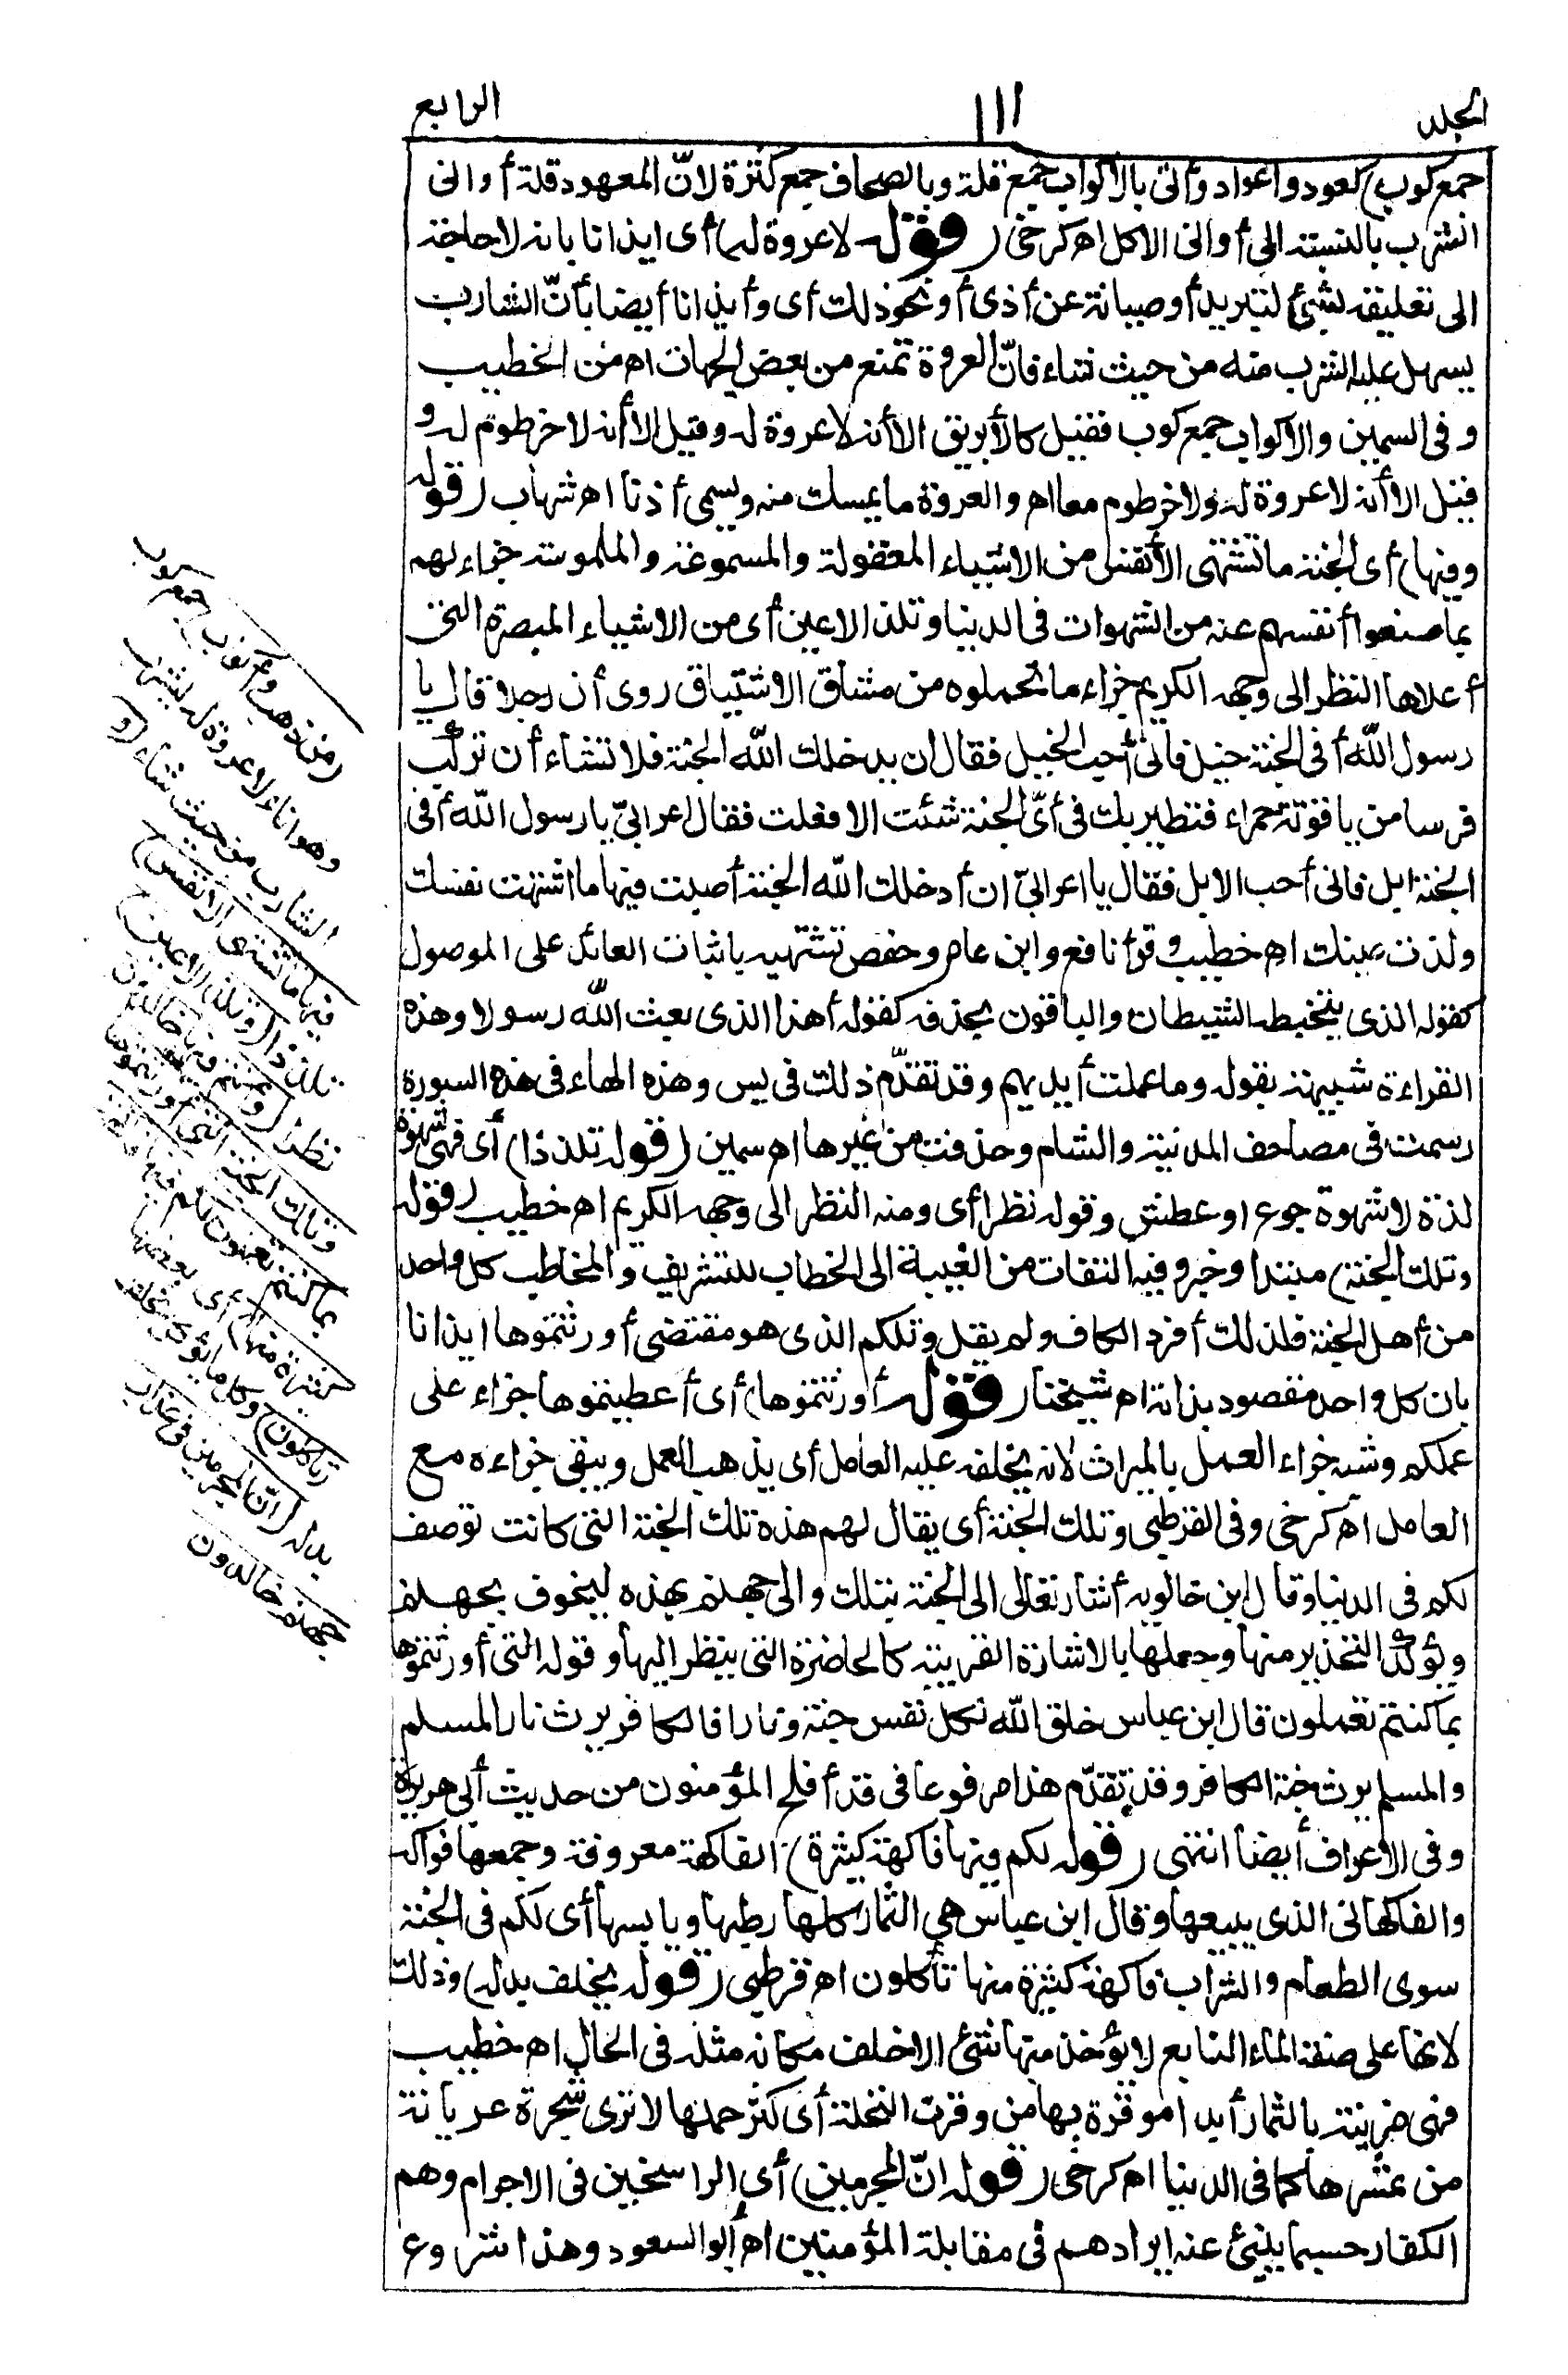 المجلد ١١١ الرابع
جمع كوب) كعود وأعواد وأتى بالأكواب جمع قلة وبالصحاف جمع كثرة لانّ المعهود قلة أوانى
الشرب بالنسبة الى أوانى الاكل اه كرخى (قوله لاعروة له) أى ايذانا بانه لاحاجة
الى تعليقه لشئ لتبريد أو صيانة عن أذى أو نحوذلك أى وأيذانا أيضا بأنّ الشارب
يسهل عليه الشرب منه من حيث شاء فانّ العروة تمنع من بعض الجهات اه من الخطيب
وفى السمين والاكواب جمع كوب فقيل كالأبريق الاأنه لاعروة له وقيل الاأنه لاخرطوم له و
قيل الاأنه لاعروة له ولاخرطوم معا اه والعروة مايمسك منه ويسمى أذنا اه شهاب (قوله
وفيها) أى الجنة ماتشتهى الأنفس من الاشياء المعقولة والمسموعة والملموسة جزاء لهم
بما منعوا أنفسهم عنه من الشهوات فى الدنيا وتلذ الاعين أى من الاشياء المبصرة التى
أعلاها النظر الى وجهه الكريم جزاء ماتحملوه من مشاق الاشتياق روى أن رجلا قال يا
رسول الله أفى الجنة خيل فانى أحب الخيل فقال ان يدخلك الله الجنة فلا تشاء أن تركب
فرسا من ياقوتة حمراء فتطير بك فى أىّ الجنة شئت الا فعلت فقال اعرابىّ يا رسول الله أفى
الجنة ابل فانى أحب الابل فقال يا اعرابىّ ان أدخلك الله الجنة أصبت فيها ما اشتهت نفسك
ولذت عينك اه خطيب وقرأ نافع وابن عامر وحفص تشتهيه باثبات العائد على الموصول
كقوله الذى يتخبطه الشيطان والباقون بحذفه كقوله أهذا الذى بعث الله رسولا وهذه
القراءة شبيهة بقوله وماعملت أيديهم وقد تقدّم ذلك فى يس وهذه الهاء فى هذه السورة
رسمت فى مصاحف المدنية والشام وحذفت من غيرها اه سمين (قوله تلذذا) أى فهى شهوة
لذة لاشهوة جوع او عطش وقوله نظرا أى ومنه النظر الى وجهه الكريم اه خطيب (قوله
وتلك الجنة) مبتدا وخبر وفيه التفات من الغيبة الى الخطاب للتشريف والمخاطب كل واحد
من أهل الجنة فلذلك أفرد الكاف ولم يقل وتلكم الذى هو مقتضى أورثتموها ايذانا
بان كل واحد مقصود بذاته اه شيخنا (قوله أورثتموها) أى أعطيتموها جزاء على
عملكم وشبه جزاء العمل بالميراث لانه يخلفه عليه العامل أى يذهب العمل ويبقى جزاءه مع
العامل اه كرخى وفى القرطبى وتلك الجنة أى يقال لهم هذه تلك الجنة التى كانت توصف
لكم فى الدنيا وقال ابن خالويه أشار تعالى الى الجنة بتلك والى جهنم بهذه ليخوف بجهنم
ويؤكد التحذير منها وجعلها بالاشارة القريبة كالحاضرة التى ينظر اليها وقوله التى أورثتموها
بما كنتم تعملون قال ابن عباس خلق الله لكل نفس جنة ونارا فالكافر يرث نار المسلم
والمسلم يرث جنة الكافر وقد تقدّم هذا مرفوعا فى قد أفلح المؤمنون من حديث أبى هريرة
وفى الاعراف أيضا انتهى (قوله لكم فيها فاكهة كثيرة) الفاكهة معروفة وجمعها فواكه
والفاكهانى الذى يبيعها وقال ابن عباس هى الثمار كلها رطبها ويابسها أى لكم فى الجنة
سوى الطعام والشراب فاكهة كثيرة منها تأكلون اه قرطبى (قوله يخلف بدله) وذلك
لانها على صفة الماء النابع لايؤخذ منها شئ الاخلف مكانه مثله فى الحال اه خطيب
فهى مزينة بالثمار أبدا موقرة بها من وقرت النخلة أى كثر حملها لاترى شجرة عريانة
من ثمرها كما فى الدنيا اه كرخى (قوله انّ المجرمين) أى الراسخين فى الاجرام وهم
الكفار حسبما ينبئ عنه ايرادهم فى مقابلة المؤمنين اه أبو السعود وهذا شروع
(من ذهب وأكواب) جمع كوب
وهو اناء لاعروة له ليشرب
الشارب من حيث شاء (و
فيها ماتشتهى الانفس)
تلذذا (وتلذ الاعين)
نظرا (وأنتم فيها خالدون
وتلك الجنة التى أورثتموها
بما كنتم تعملون لكم فيها فاكهة
كثيرة منها) أى بعضها
(تاكلون) وكل مايؤكل يخلف
بدله (انّ المجرمين فى عذاب
جهنم خالدون